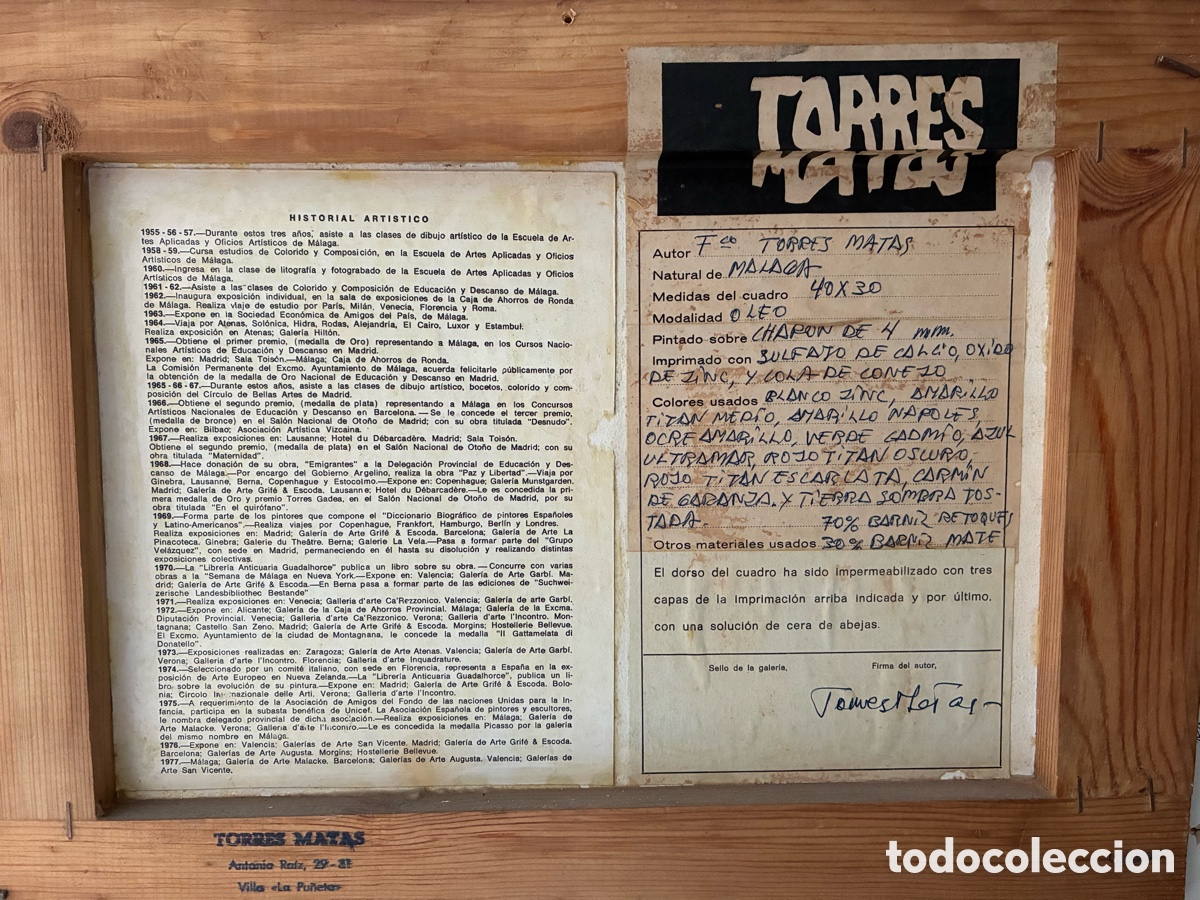 HISTORIAL ARTISTICO
1955 - 56 - 57.—Durante estos tres años, asiste a las clases de dibujo artístico de la Escuela de Ar-
tes Aplicadas y Oficios Artísticos de Málaga.
1958 - 59.—Cursa estudios de Colorido y Composición, en la Escuela de Artes Aplicadas y Oficios
Artísticos de Málaga.
1960.—Ingresa en la clase de litografía y fotograbado de la Escuela de Artes Aplicadas y Oficios
Artísticos de Málaga.
1961 - 62.—Asiste a las clases de Colorido y Composición de Educación y Descanso de Málaga.
1962.—Inaugura exposición individual, en la sala de exposiciones de la Caja de Ahorros de Ronda
de Málaga. Realiza viaje de estudio por París, Milán, Venecia, Florencia y Roma.
1963.—Expone en la Sociedad Económica de Amigos del País, de Málaga.
1964.—Viaja por Atenas, Solónica, Hidra, Rodas, Alejandría, El Cairo, Luxor y Estambul.
Realiza exposición en Atenas; Galería Hiltón.
1965.—Obtiene el primer premio, (medalla de Oro) representando a Málaga, en los Cursos Nacio-
nales Artísticos de Educación y Descanso en Madrid.
Expone en: Madrid; Sala Toisón.—Málaga; Caja de Ahorros de Ronda.
La Comisión Permanente del Excmo. Ayuntamiento de Málaga, acuerda felicitarle públicamente por
la obtención de la medalla de Oro Nacional de Educación y Descanso en Madrid.
1965 - 66 - 67.—Durante estos años, asiste a las clases de dibujo artístico, bocetos, colorido y com-
posición del Círculo de Bellas Artes de Madrid.
1966.—Obtiene el segundo premio, (medalla de plata) representando a Málaga en los Concursos
Artísticos Nacionales de Educación y Descanso en Barcelona.—Se le concede el tercer premio,
(medalla de bronce) en el Salón Nacional de Otoño de Madrid; con su obra titulada "Desnudo".
Expone en: Bilbao; Asociación Artística Vizcaina.
1967.—Realiza exposiciones en: Lausanne; Hotel du Débarcadère. Madrid; Sala Toisón.
Obtiene el segundo premio, (medalla de plata) en el Salón Nacional de Otoño de Madrid; con su
obra titulada "Maternidad".
1968.—Hace donación de su obra, "Emigrantes" a la Delegación Provincial de Educación y Des-
canso de Málaga.—Por encargo del Gobierno Argelino, realiza la obra "Paz y Libertad".—Viaja por
Ginebra, Lausanne, Berna, Copenhague y Estocolmo.—Expone en: Copenhague; Galería Munstgarden.
Madrid; Galería de Arte Grifé & Escoda. Lausanne; Hotel du Débarcadère.—Le es concedida la pri-
mera medalla de Oro y premio Torres Gadea, en el Salón Nacional de Otoño de Madrid, por su
obra titulada "En el quirófano".
1969.—Forma parte de los pintores que compone el "Diccionario Biográfico de pintores Españoles
y Latino-Americanos".—Realiza viajes por Copenhague, Frankfort, Hamburgo, Berlín y Londres.
Realiza exposiciones en: Madrid; Galería de Arte Grifé & Escoda. Barcelona; Galería de Arte La
Pinacoteca. Ginebra; Galerie du Theâtre. Berna; Galerie La Vela.—Pasa a formar parte del "Grupo
Velázquez", con sede en Madrid, permaneciendo en él hasta su disolución y realizando distintas
exposiciones colectivas.
1970.—La "Librería Anticuaria Guadalhorce" publica un libro sobre su obra.—Concurre con varias
obras a la "Semana de Málaga en Nueva York.—Expone en: Valencia; Galería de Arte Garbí. Ma-
drid; Galería de Arte Grifé & Escoda.—En Berna pasa a formar parte de las ediciones de "Suchwei-
zerische Landesbibliothec Bestande"
1971.—Realiza exposiciones en: Venecia; Galleria d'arte Ca'Rezzonico. Valencia; Galería de arte Garbí.
1972.—Expone en: Alicante; Galería de la Caja de Ahorros Provincial. Málaga; Galería de la Excma.
Diputación Provincial. Venecia; Galleria d'arte Ca'Rezzonico. Verona; Galleria d'arte l'Incontro. Mon-
tagnana; Castello San Zeno. Madrid; Galería de Arte Grifé & Escoda. Morgins; Hostellerie Bellevue.
El Excmo. Ayuntamiento de la ciudad de Montagnana, le concede la medalla "Il Gattamelata di
Donatello".
1973.—Exposiciones realizadas en: Zaragoza; Galería de Arte Atenas. Valencia; Galería de Arte Garbí.
Verona; Galleria d'arte l'Incontro. Florencia; Galleria d'arte Inquadrature.
1974.—Seleccionado por un comité italiano, con sede en Florencia, representa a España en la ex-
posición de Arte Europeo en Nueva Zelanda.—La "Librería Anticuaria Guadalhorce", publica un li-
bro sobre la evolución de su pintura.—Expone en: Madrid; Galería de Arte Grifé & Escoda. Bolo-
nia; Circolo Internazionale delle Arti. Verona; Galleria d'arte l'Incontro.
1975.—A requerimiento de la Asociación de Amigos del Fondo de las naciones Unidas para la In-
fancia, participa en la subasta benéfica de Unicef. La Asociación Española de pintores y escultores,
le nombra delegado provincial de dicha asociación.—Realiza exposiciones en: Málaga; Galería de
Arte Malacke. Verona; Galleria d'arte l'Incontro.—Le es concedida la medalla Picasso por la galería
del mismo nombre en Málaga.
1976.—Expone en: Valencia; Galerías de Arte San Vicente. Madrid; Galería de Arte Grifé & Escoda.
Barcelona; Galerías de Arte Augusta. Morgins; Hostellerie Bellevue.
1977.—Málaga; Galería de Arte Malacke. Barcelona; Galerías de Arte Augusta. Valencia; Galerías de
Arte San Vicente.
TORRES
MATAS
Autor Fco TORRES MATAS
Natural de MALAGA
Medidas del cuadro 40X30
Modalidad OLEO
Pintado sobre CHAPON DE 4 mm.
Imprimado con SULFATO DE CALCIO, OXIDO
DE ZINC, Y COLA DE CONEJO
Colores usados BLANCO ZINC, AMARILLO
TITAN MEDIO, AMARILLO NAPOLES,
OCRE AMARILLO, VERDE CADMIO, AZUL
ULTRAMAR, ROJO TITAN OSCURO,
ROJO TITAN ESCARLATA, CARMIN
DE GARANZA, Y TIERRA SOMBRA TOS-
TADA. 70% BARNIZ RETOQUES
Otros materiales usados 30% BARNIZ MATE
El dorso del cuadro ha sido impermeabilizado con tres
capas de la imprimación arriba indicada y por último,
con una solución de cera de abejas.
Sello de la galería, Firma del autor,
Torres Matas
TORRES MATAS
Antonio Raíz, 29 - 31
Villa «La Puñeta»
todocoleccion